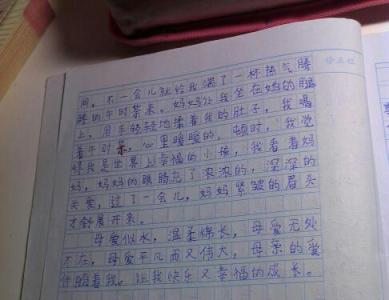 间，不一会儿就给我端了一杯热气腾
腾的午时茶来。妈妈让我坐在妈妈的腿
上，用手轻轻地揉着我的肚子，我喝
着午时茶，心里暖暖的。顿时，我觉
我是世界上幸福的小孩，我看着妈
妈，妈妈的眼睛充了浓浓的，深深的
关爱，过了一会儿，妈妈紧皱的眉头
才舒展开来。
母爱似水，温柔绵长，母爱无处
不在，母爱平凡而又伟大，母亲的爱
伴随着我。让我快乐又幸福的成长。